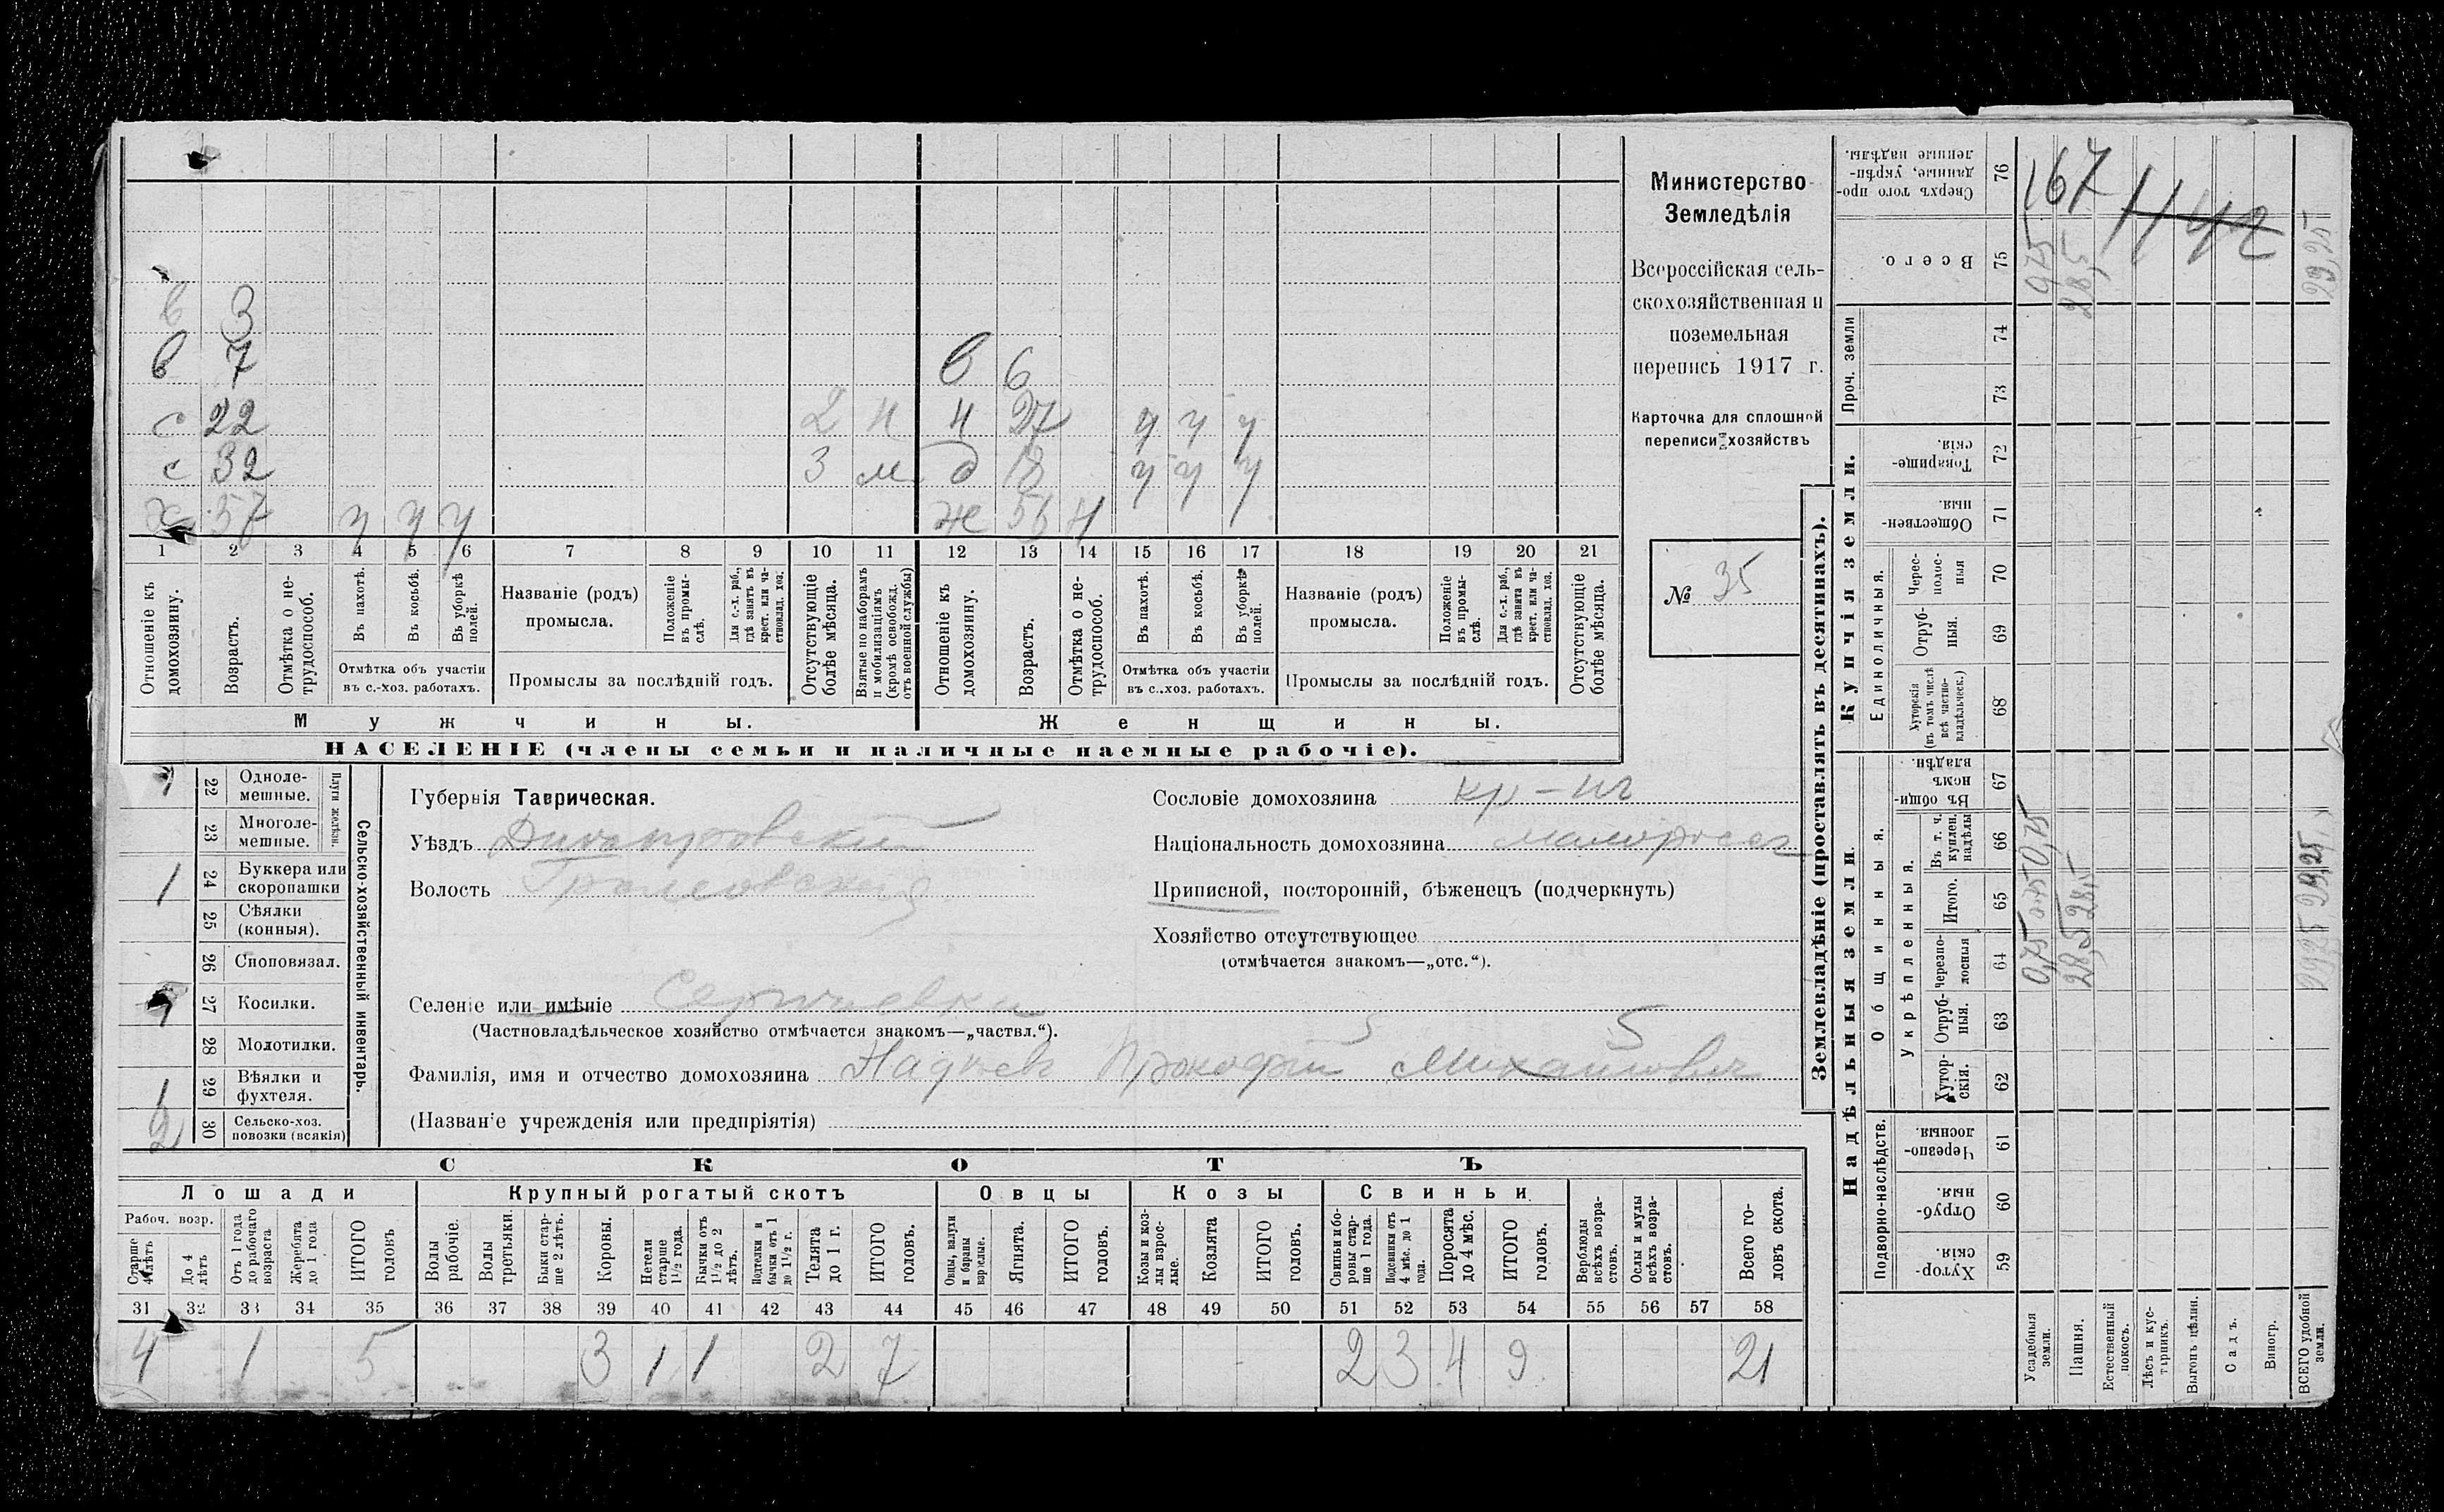 Министерство
Земледѣлія
Всероссійская сель-
скохозяйственная и
поземельная
перепись 1917 г.
Карточка для сплошной
переписи хозяйствъ
№ 35
в 3
в 7 в 6
с 22 2 н н 27 у у у
с 32 3 м д 18 у у у
х 57 у у у ж 56 н
1 2 3 4 5 6 7 8 9 10 11 12 13 14 15 16 17 18 19 20 21
Отношеніе къ домохозяину.
Возрастъ.
Отмѣтка о не-трудоспособ.
Въ пахотѣ.
Въ косьбѣ.
Въ уборкѣ полей.
Отмѣтка объ участіи
въ с.-хоз. работахъ.
Названіе (родъ)
промысла.
Положеніе въ промы-слѣ.
Для с.-х. раб., гдѣ занятъ въ крест. или ча-стновлад. хоз.
Промыслы за послѣдній годъ.
Отсутствующіе болѣе мѣсяца.
Взятые по наборамъ и мобилизаціямъ (кромѣ освобожд. отъ военной службы)
Отношеніе къ домохозяину.
Возрастъ.
Отмѣтка о не-трудоспособ.
Въ пахотѣ.
Въ косьбѣ.
Въ уборкѣ полей.
Отмѣтка объ участіи
въ с.-хоз. работахъ.
Названіе (родъ)
промысла.
Положеніе въ промы-слѣ.
Для с.-х. раб., гдѣ занята въ крест. или ча-стновлад. хоз.
Промыслы за послѣдній годъ.
Отсутствующіе болѣе мѣсяца.
Мужчины.
Женщины.
НАСЕЛЕНІЕ (члены семьи и наличные наемные рабочіе).
Сельско-хозяйственный инвентарь.
Плуги желѣзн.
22 Одноле-
мешные.
23 Многоле-
мешные.
1 24 Буккера или
скоропашки
25 Сѣялки
(конныя).
26 Споповязал.
27 Косилки.
28 Молотилки.
1 29 Вѣялки и
фухтеля.
2 30 Сельско-хоз.
повозки (всякія)
Губернія Таврическая.
Уѣздъ Днепровскій
Волость
Селеніе или имѣніе
(Частновладѣльческое хозяйство отмѣчается знакомъ—„частвл.“).
5
Фамилія, имя и отчество домохозяина Прокофій Михайлович
(Назван'е учрежденія или предпріятія)
Сословіе домохозяина кр-нъ
Національность домохозяина малоросс
Приписной, посторонній, бѣженецъ (подчеркнуть)
Хозяйство отсутствующее
(отмѣчается знакомъ—„отс.“).
СКОТЪ
Лошади
Крупный рогатый скотъ
Овцы
Козы
Свиньи
Рабоч. возр.
Старше 4 лѣтъ
До 4 лѣтъ
Отъ 1 года до рабочаго возраста
Жеребята до 1 года
ИТОГО головъ
Волы рабочіе.
Волы третьяки.
Быки стар-ше 2 лѣтъ.
Коровы.
Нетели старше 1½ года.
Бычки отъ 1½ до 2 лѣтъ.
Подтелки и бычки отъ 1 до 1½ г.
Телята до 1 г.
ИТОГО головъ.
Овцы, валухи и бараны взрослые.
Ягнята.
ИТОГО головъ.
Козы и коз-лы взрос-лые.
Козлята
ИТОГО головъ.
Свиньи бо-ровы стар-ше 1 года.
Подсвинки отъ 4 мѣс. до 1 года.
Поросята до 4 мѣс.
ИТОГО головъ.
Верблюды всѣхъ возра-стовъ.
Ослы и мулы всѣхъ возра-стовъ.
Всего го-ловъ скота.
31 32 33 34 35 36 37 38 39 40 41 42 43 44 45 46 47 48 49 50 51 52 53 54 55 56 57 58
4 1 5 3 1 1 2 7 2 3 4 9 21
Землевладѣніе (проставлять въ десятинахъ).
Надѣльныя земли
Купчія земли.
Проч. земли
Подворно-наслѣдств.
Общинныя.
Укрѣпленныя.
Единоличныя.
59 Хутор-скія.
60 Отруб-ныя.
61 Черезпо-лосныя.
62 Хутор-скія.
63 Отруб-ныя.
64 Черезпо-лосныя
65 Итого.
66 Въ т. ч. куплен. надѣлы
67 Въ общин-номъ владѣн.
68 Хуторскія (въ томъ числѣ всѣ частно-владѣльческ.)
69 Отруб-ныя.
70 Черес-полос-ныя
71 Обществен-ныя.
72 Товарище-скія.
73
74
75 Всего.
76 Сверхъ того про-данные, укрѣп-ленные надѣлы.
Усадебныя земли. 0,75 0,75 0,75 0,75
Пашня. 28,5 28,5 28,5
Естественный покосъ.
Лѣсъ и кус-тарникъ.
Выгонъ цѣлин.
Садъ.
Виногр.
ВСЕГО удобной земли. 29,25 29,25 29,25
167
1142